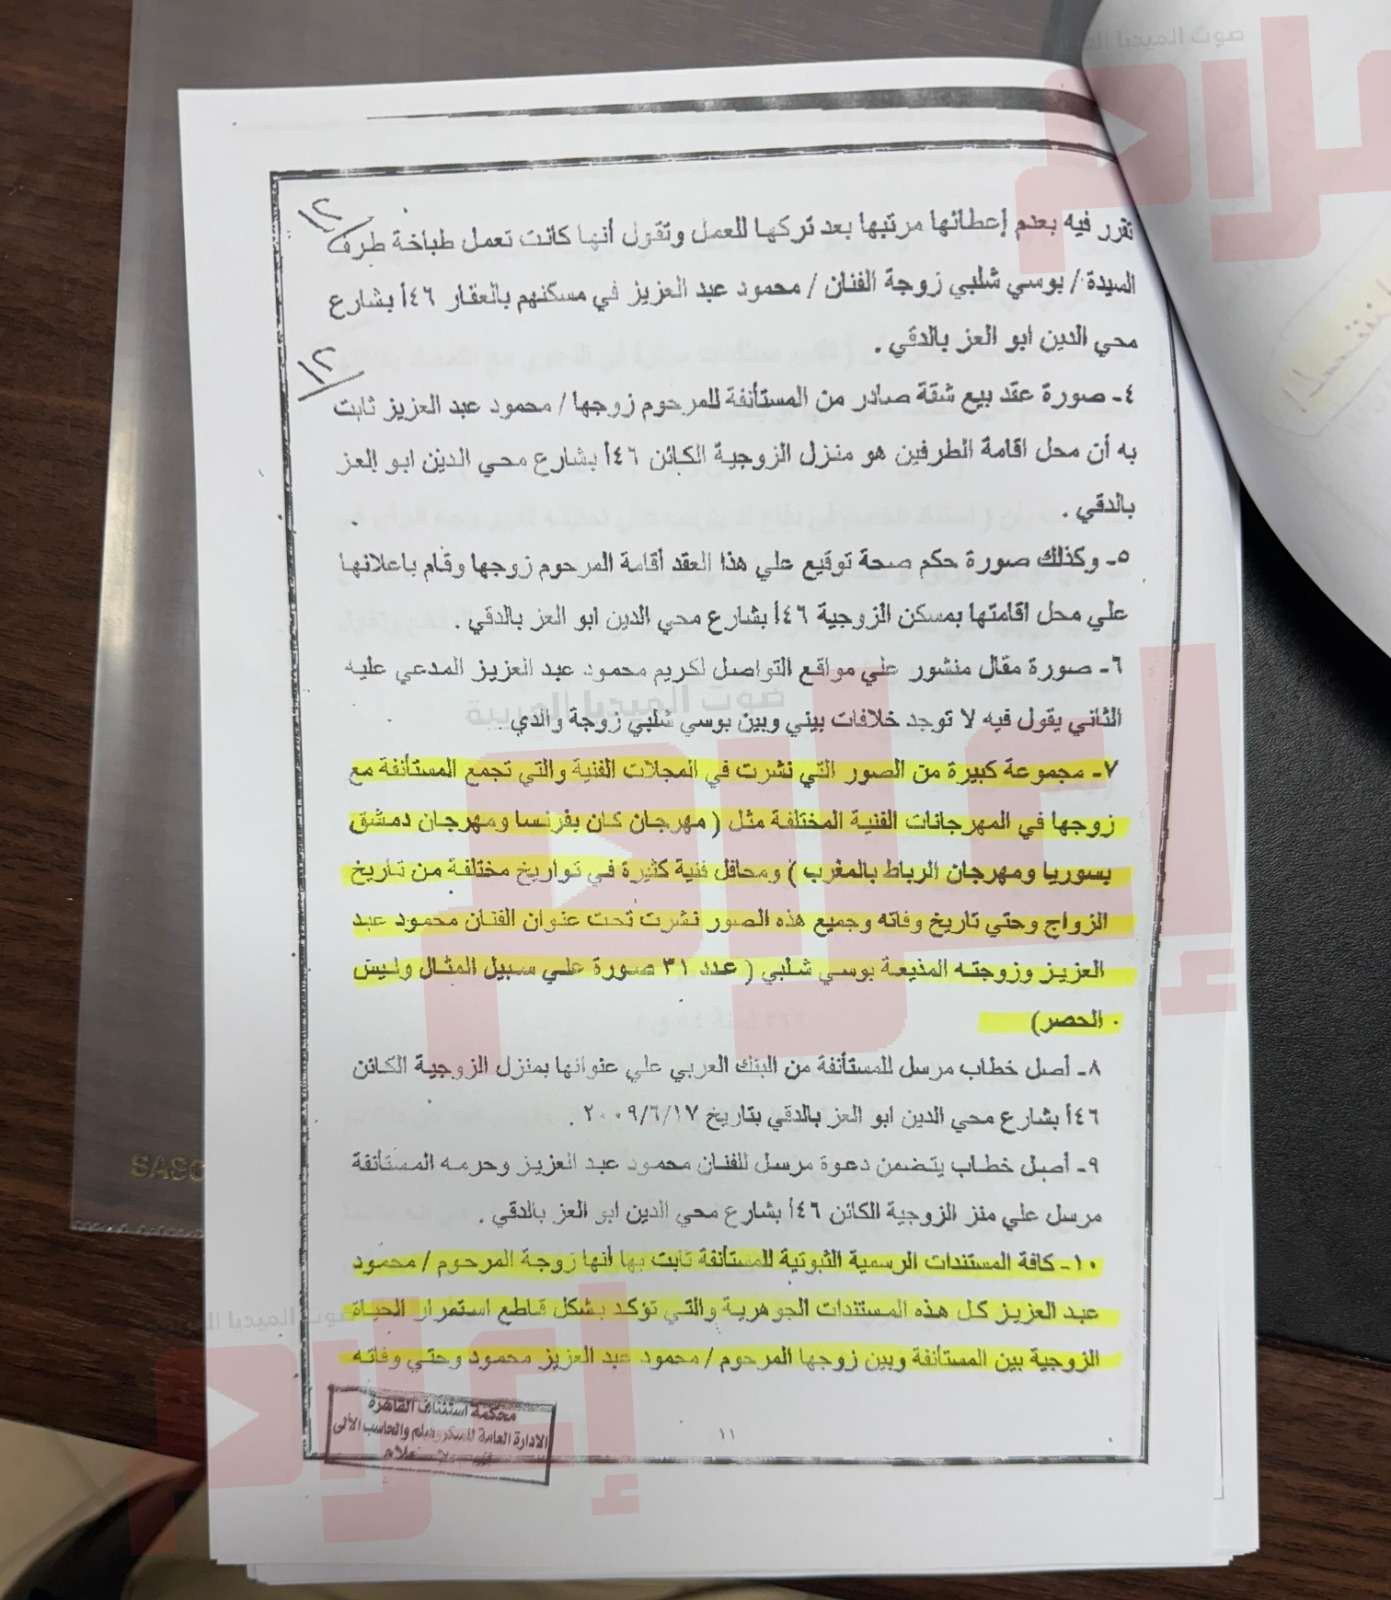 صوت الميديا
إعلام
١٢
تقرر فيه بعدم إعطائها مرتبها بعد تركها للعمل وتقول أنها كانت تعمل طباخة طرف
السيدة / بوسي شلبي زوجة الفنان / محمود عبد العزيز في مسكنهم بالعقار ٤٦أ بشارع
محي الدين ابو العز بالدقي .
١٢
٤- صورة عقد بيع شقة صادر من المستأنفة للمرحوم زوجها / محمود عبد العزيز ثابت
به أن محل اقامة الطرفين هو منزل الزوجية الكائن ٤٦أ بشارع محي الدين ابو العز
بالدقي .
٥- وكذلك صورة حكم صحة توقيع علي هذا العقد أقامة المرحوم زوجها وقام باعلانها
علي محل اقامتها بمسكن الزوجية ٤٦أ بشارع محي الدين ابو العز بالدقي .
٦- صورة مقال منشور علي مواقع التواصل لكريم محمود عبد العزيز المدعي عليه
الثاني يقول فيه لا توجد خلافات بيني وبين بوسي شلبي زوجة والدي .
صوت الميديا العربية
إعلام
٧- مجموعة كبيرة من الصور التي نشرت في المجلات الفنية والتي تجمع المستأنفة مع
زوجها في المهرجانات الفنية المختلفة مثل ( مهرجان كان بفرنسا ومهرجان دمشق
بسوريا ومهرجان الرباط بالمغرب ) ومحافل فنية كثيرة في تواريخ مختلفة من تاريخ
الزواج وحتي تاريخ وفاته وجميع هذه الصور نشرت تحت عنوان الفنان محمود عبد
العزيز وزوجته المذيعة بوسي شلبي ( عدد ٣١ صورة علي سبيل المثال وليس
الحصر) .
٨- أصل خطاب مرسل للمستأنفة من البنك العربي علي عنوانها بمنزل الزوجية الكائن
٤٦أ بشارع محي الدين ابو العز بالدقي بتاريخ ٢٠٠٩/٦/١٧ .
٩- أصل خطاب يتضمن دعوة مرسل للفنان محمود عبد العزيز وحرمه المستأنفة
مرسل علي منز الزوجية الكائن ٤٦أ بشارع محي الدين ابو العز بالدقي .
١٠- كافة المستندات الرسمية الثبوتية للمستأنفة ثابت بها أنها زوجة المرحوم / محمود
عبد العزيز كل هذه المستندات الجوهرية والتي تؤكد بشكل قاطع استمرار الحياة
الزوجية بين المستأنفة وبين زوجها المرحوم / محمود عبد العزيز محمود وحتي وفاته
صوت الميديا
إعلام
محكمة استئناف القاهرة
الادارة العامة للميكروفيلم والحاسب الآلى
١١